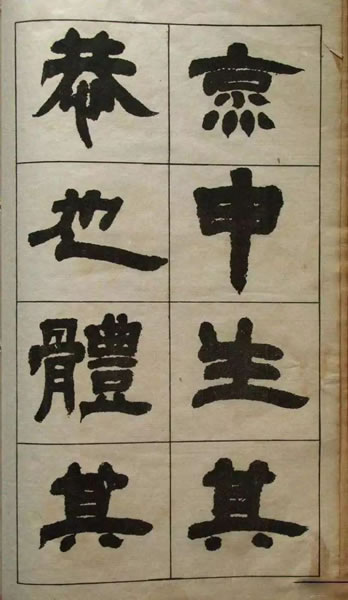 烹申生其
恭也體其